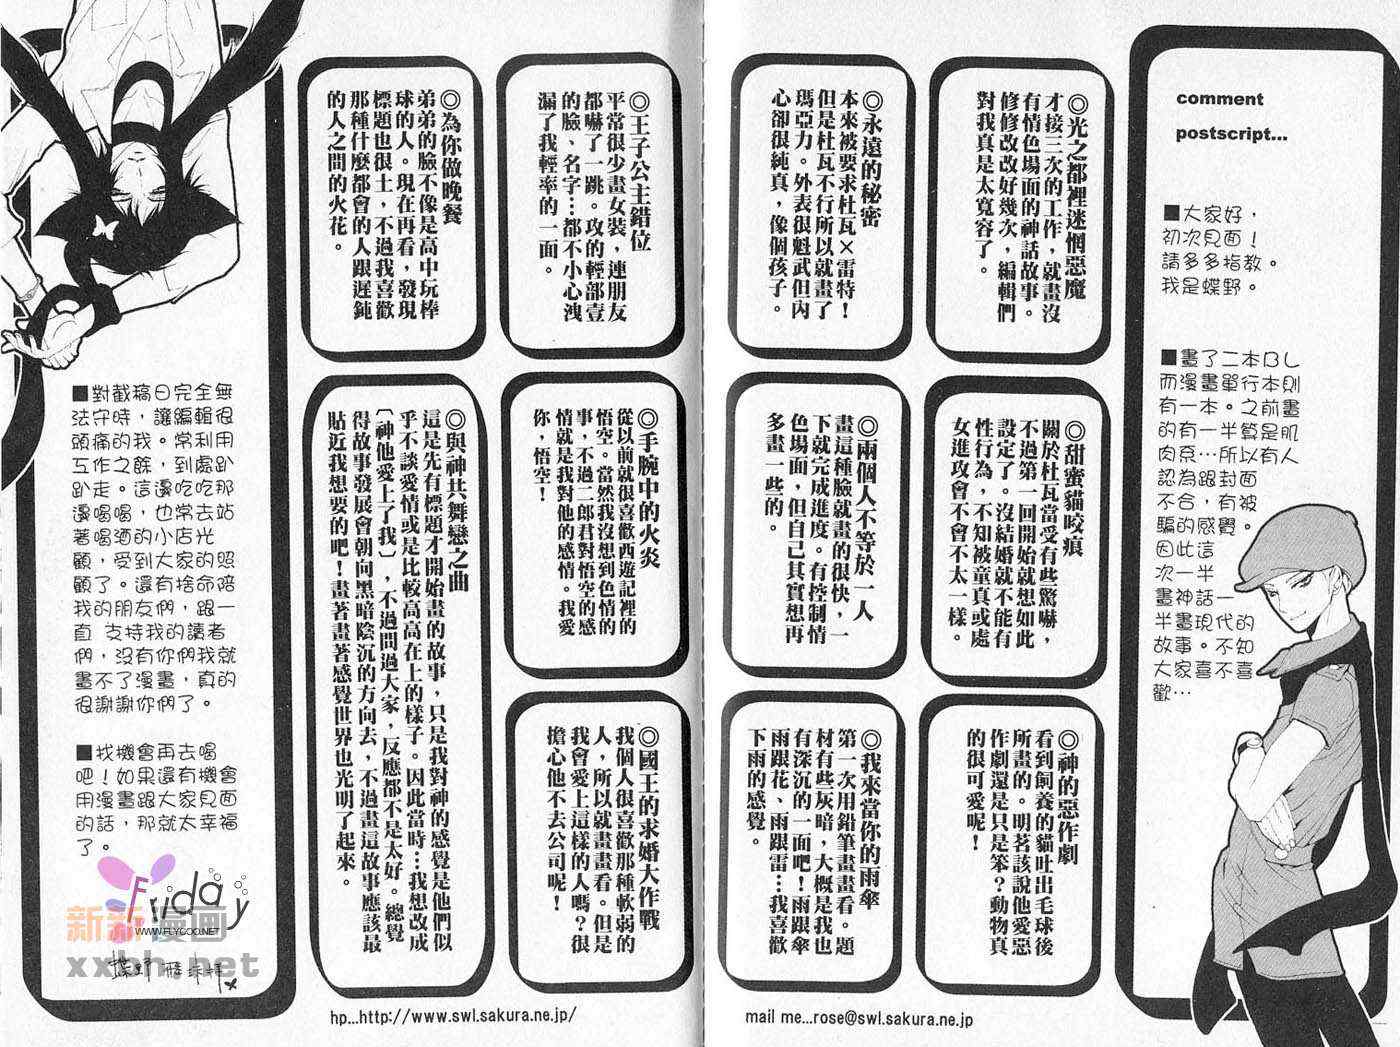 comment
postscript...
■大家好，
初次見面！
請多多指教。
我是蝶野。
■畫了二本BL
而漫畫單行本則
有一本。之前畫
的有一半算是肌
肉系…所以有人
認為跟封面
不合，有被
騙的感覺。
因此這
次一半
畫神話一
半畫現代的
故事。不知
大家喜不喜
歡…
◎光之都裡迷惘惡魔
才接三次的工作，就畫沒
有情色場面的神話故事。
修修改改好幾次，編輯們
對我真是太寬容了。
◎永遠的秘密
本來被要求杜瓦×雷特！
但是杜瓦不行所以就畫了
瑪亞力。外表很魁武但內
心卻很純真，像個孩子。
◎甜蜜貓咬痕
關於杜瓦當受有些驚嚇，
不過第一回開始就想如此
設定了。沒結婚就不能有
性行為，不知被童真或處
女進攻會不會不太一樣。
◎兩個人不等於一人
畫這種臉就畫的很快，一
下就完成進度。有控制情
色場面，但自己其實想再
多畫一些的。
◎神的惡作劇
看到飼養的貓吐出毛球後
所畫的。明著該說他愛惡
作劇還是只是笨？動物真
的很可愛呢！
◎我來當你的雨傘
第一次用鉛筆畫畫看。題
材有些灰暗，大概是我也
有深沉的一面吧！雨跟傘
雨跟花、雨跟雷…我喜歡
下雨的感覺。
mail me...rose@swl.sakura.ne.jp
◎王子公主錯位
平常很少畫女裝，連朋友
都嚇了一跳。攻的輕部壹
的臉、名字…都不小心洩
漏了我輕率的一面。
◎為你做晚餐
弟弟的臉不像是高中玩棒
球的人。現在再看，發現
標題也很土，不過我喜歡
那種什麼都會的人跟遲鈍
的人之間的火花。
◎手腕中的火炎
從以前就很喜歡西遊記裡的
悟空。當然我沒想到色情的
事，不過二郎君對悟空的感
情就是我對他的感情。我愛
你，悟空！
◎與神共舞戀之曲
這是先有標題才開始畫的故事，只是我對神的感覺是他們似
乎不談愛情或是比較高高在上的樣子。因此當時…我想改成
〔神他愛上了我〕，不過問過大家，反應都不是太好。總覺
得故事發展會朝向黑暗陰沉的方向去，不過畫這故事應該最
貼近我想要的吧！畫著畫著感覺世界也光明了起來。
◎國王的求婚大作戰
我個人很喜歡那種軟弱的
人，所以就畫畫看。但是
我會愛上這樣的人嗎？很
擔心他不去公司呢！
hp...http://www.swl.sakura.ne.jp/
■對截稿日完全無
法守時，讓編輯很
頭痛的我。常利用
工作之餘，到處趴
趴走。這邊吃吃那
邊喝喝，也常去站
著喝酒的小店光
顧，受到大家的照
顧了。還有捨命陪
我的朋友們，跟一
直 支持我的讀者
們，沒有你們我就
畫不了漫畫，真的
很謝謝你們了。
■找機會再去喝
吧！如果還有機會
用漫畫跟大家見面
的話，那就太幸福
了。
Friday
WWW.FLYCOO.NET
新新漫画
xxbh.net